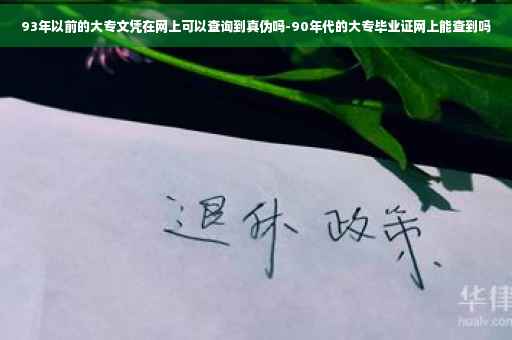 93年以前的大专文凭在网上可以查询到真伪吗-90年代的大专毕业证网上能查到吗
退休 政策
华律
hualv.com